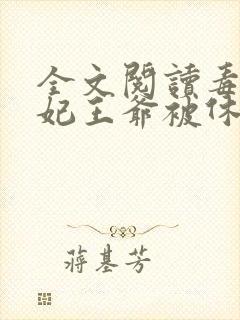 全文閱讀毒
妃王爺被休
蔣基芳